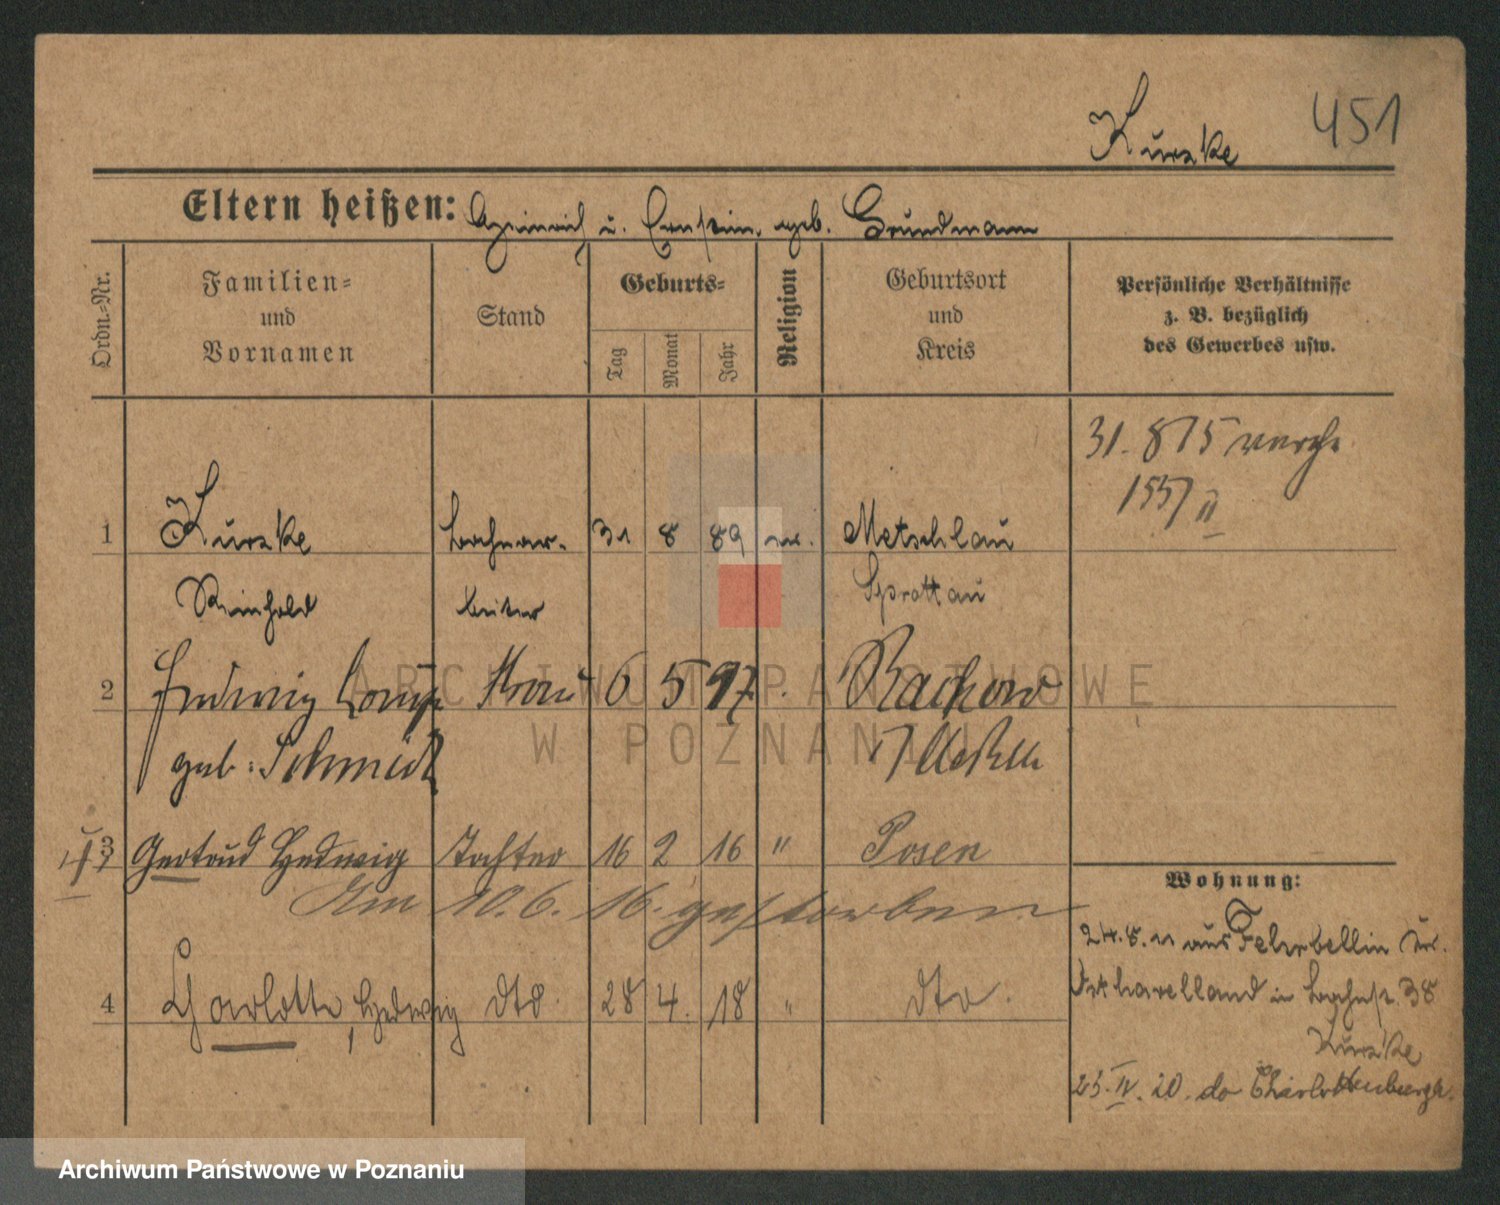 Kurzke 451
Eltern heißen: Heinrich u. Ernstine geb. Grundmann
Ordn.-Nr.
Familien-
und
Vornamen
Stand
Geburts-
Tag
Monat
Jahr
Religion
Geburtsort
und
Kreis
Persönliche Verhältnisse
z. B. bezüglich
des Gewerbes usw.
31. 8 15
1 Kurzke Bahnar- 31 8 89 ev. Metschlau
Reinhold beiter Sprottau
2 Hedwig Frau 6 5 97 Rackow
geb. Schmidt
3 Gertrud Hedwig Tochter 16 2 16 " Posen
Am 10. 6. 16. gestorben
4 Charlotte, Hedwig dto 28 4. 18 " dto.
Wohnung:
24. 8. 11 aus Fehrbellin Kr.
Osthavelland in Bahnst. 38
Kurzke
25. IV. 20. do Charlottenburg
ARCHIWUM PAŃSTWOWE
W POZNANIU
Archiwum Państwowe w Poznaniu